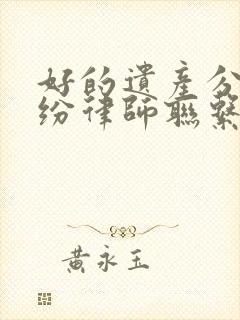 好的遺產分
紛律師聯繫
黃永玉